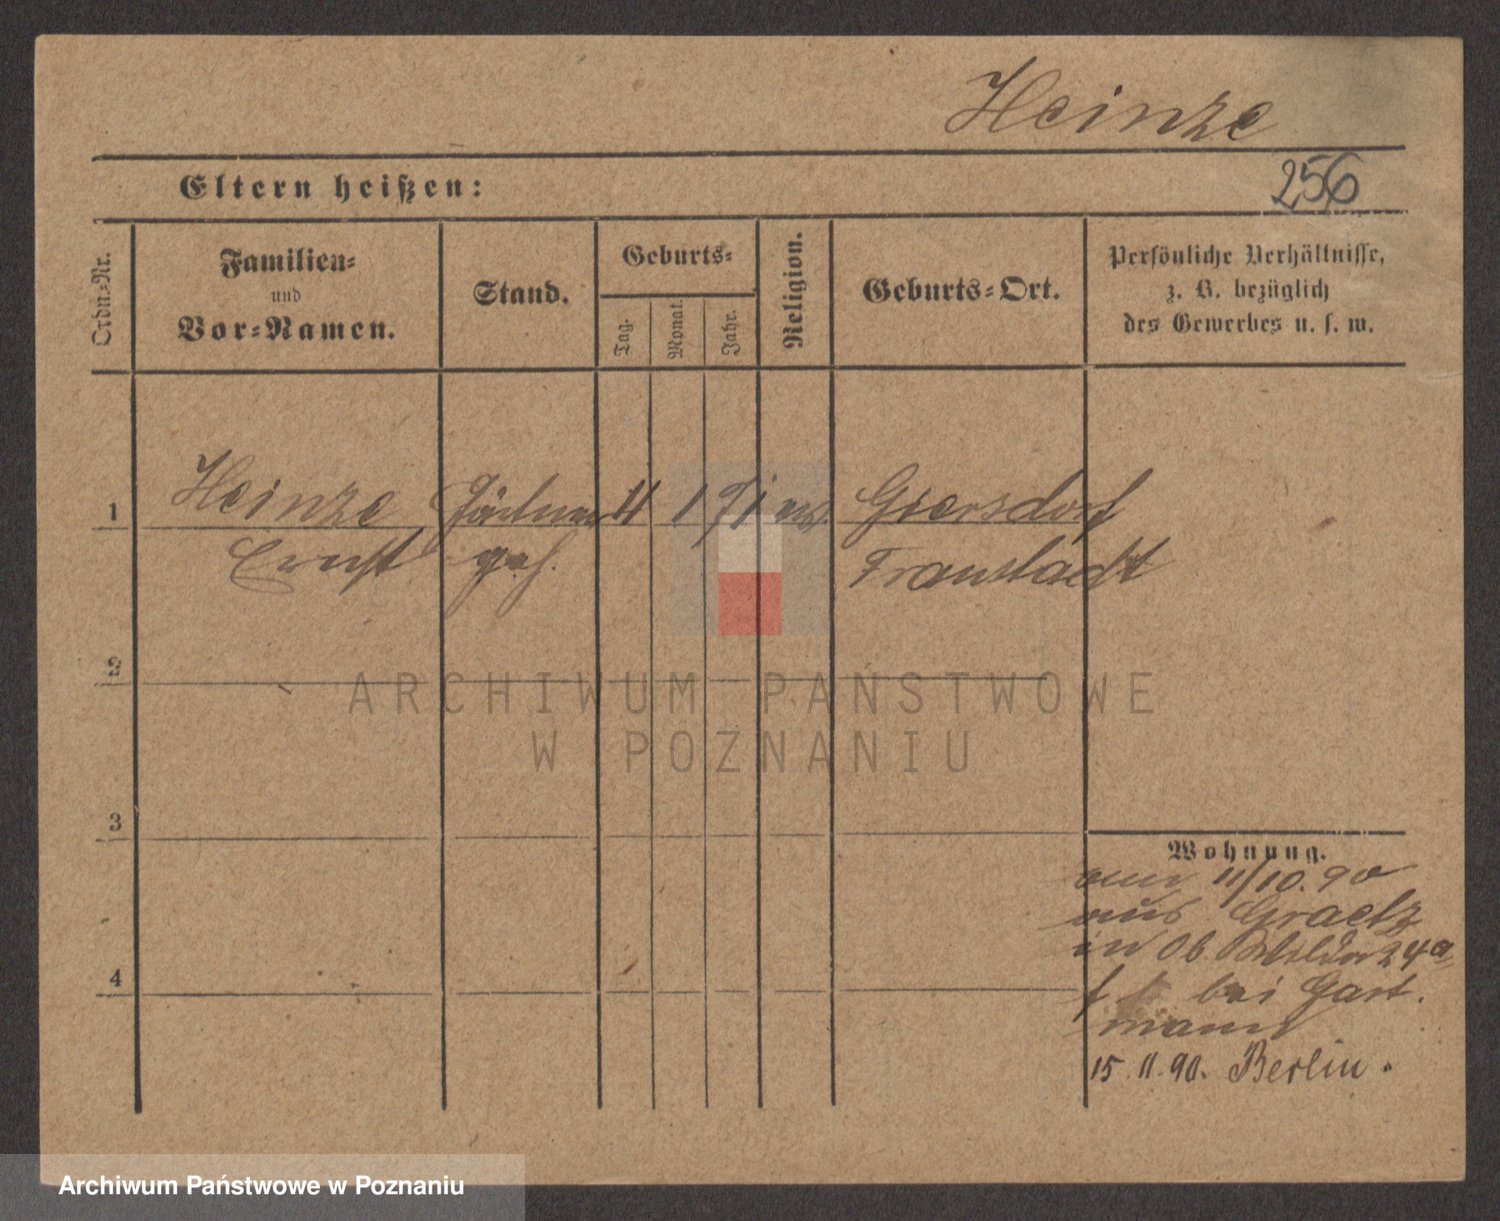 Heinze
256
Eltern heißen:
Ordn.-Nr.
Familien-
und
Vor-Namen.
Stand.
Geburts-
Tag.
Monat.
Jahr.
Religion.
Geburts-Ort.
Persönliche Verhältnisse,
z. B. bezüglich
des Gewerbes u. s. w.
1
Heinze
Ernst
Gärtner
geh.
4 1 71 ev.
Giersdorf
Fraustadt
2
3
4
Wohnung.
am 11/10. 90
aus Graetz
in Ob. Wilda 24a
bei Gart.
mann
15.11.90. Berlin.
ARCHIWUM PAŃSTWOWE
W POZNANIU
Archiwum Państwowe w Poznaniu